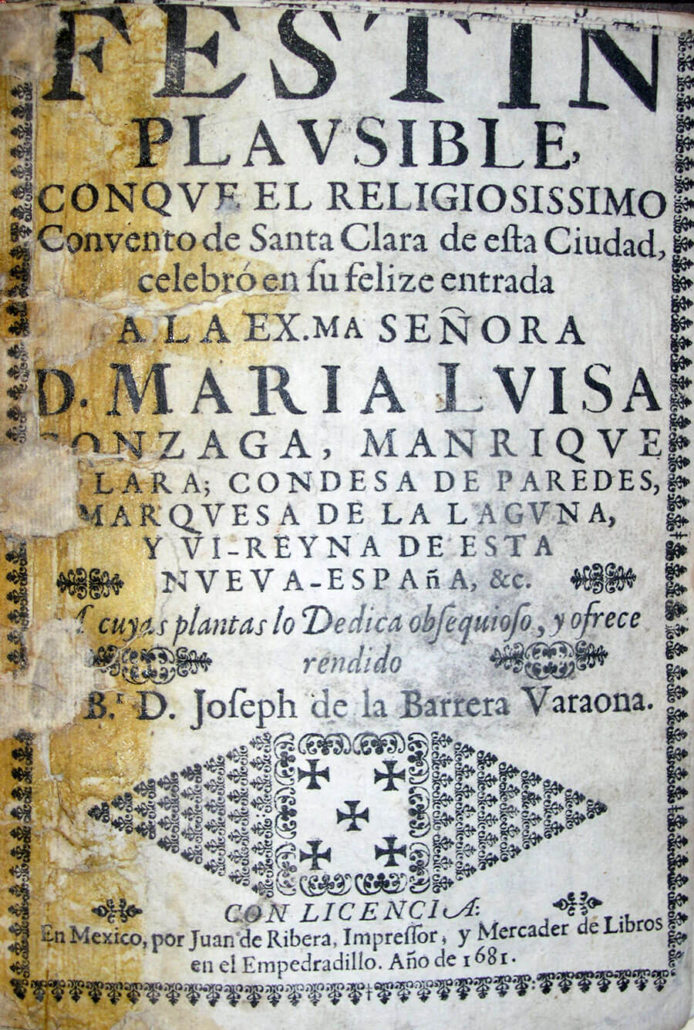 FESTIN
PLAVSIBLE,
CONQVE EL RELIGIOSISSIMO
Convento de Santa Clara de eſta Ciudad,
celebró en ſu felize entrada
A LA EX.MA SEÑORA
D. MARIA LVISA
GONZAGA, MANRIQVE
LARA; CONDESA DE PAREDES,
MARQVESA DE LA LAGVNA,
Y VI-REYNA DE ESTA
NVEVA-ESPAñA, &c.
A cuyas plantas lo Dedica obſequioſo, y ofrece
rendido
B.r D. Joſeph de la Barrera Varaona.
CON LICENCIA:
En Mexico, por Juan de Ribera, Impreſſor, y Mercader de Libros
en el Empedradillo. Año de 1681.